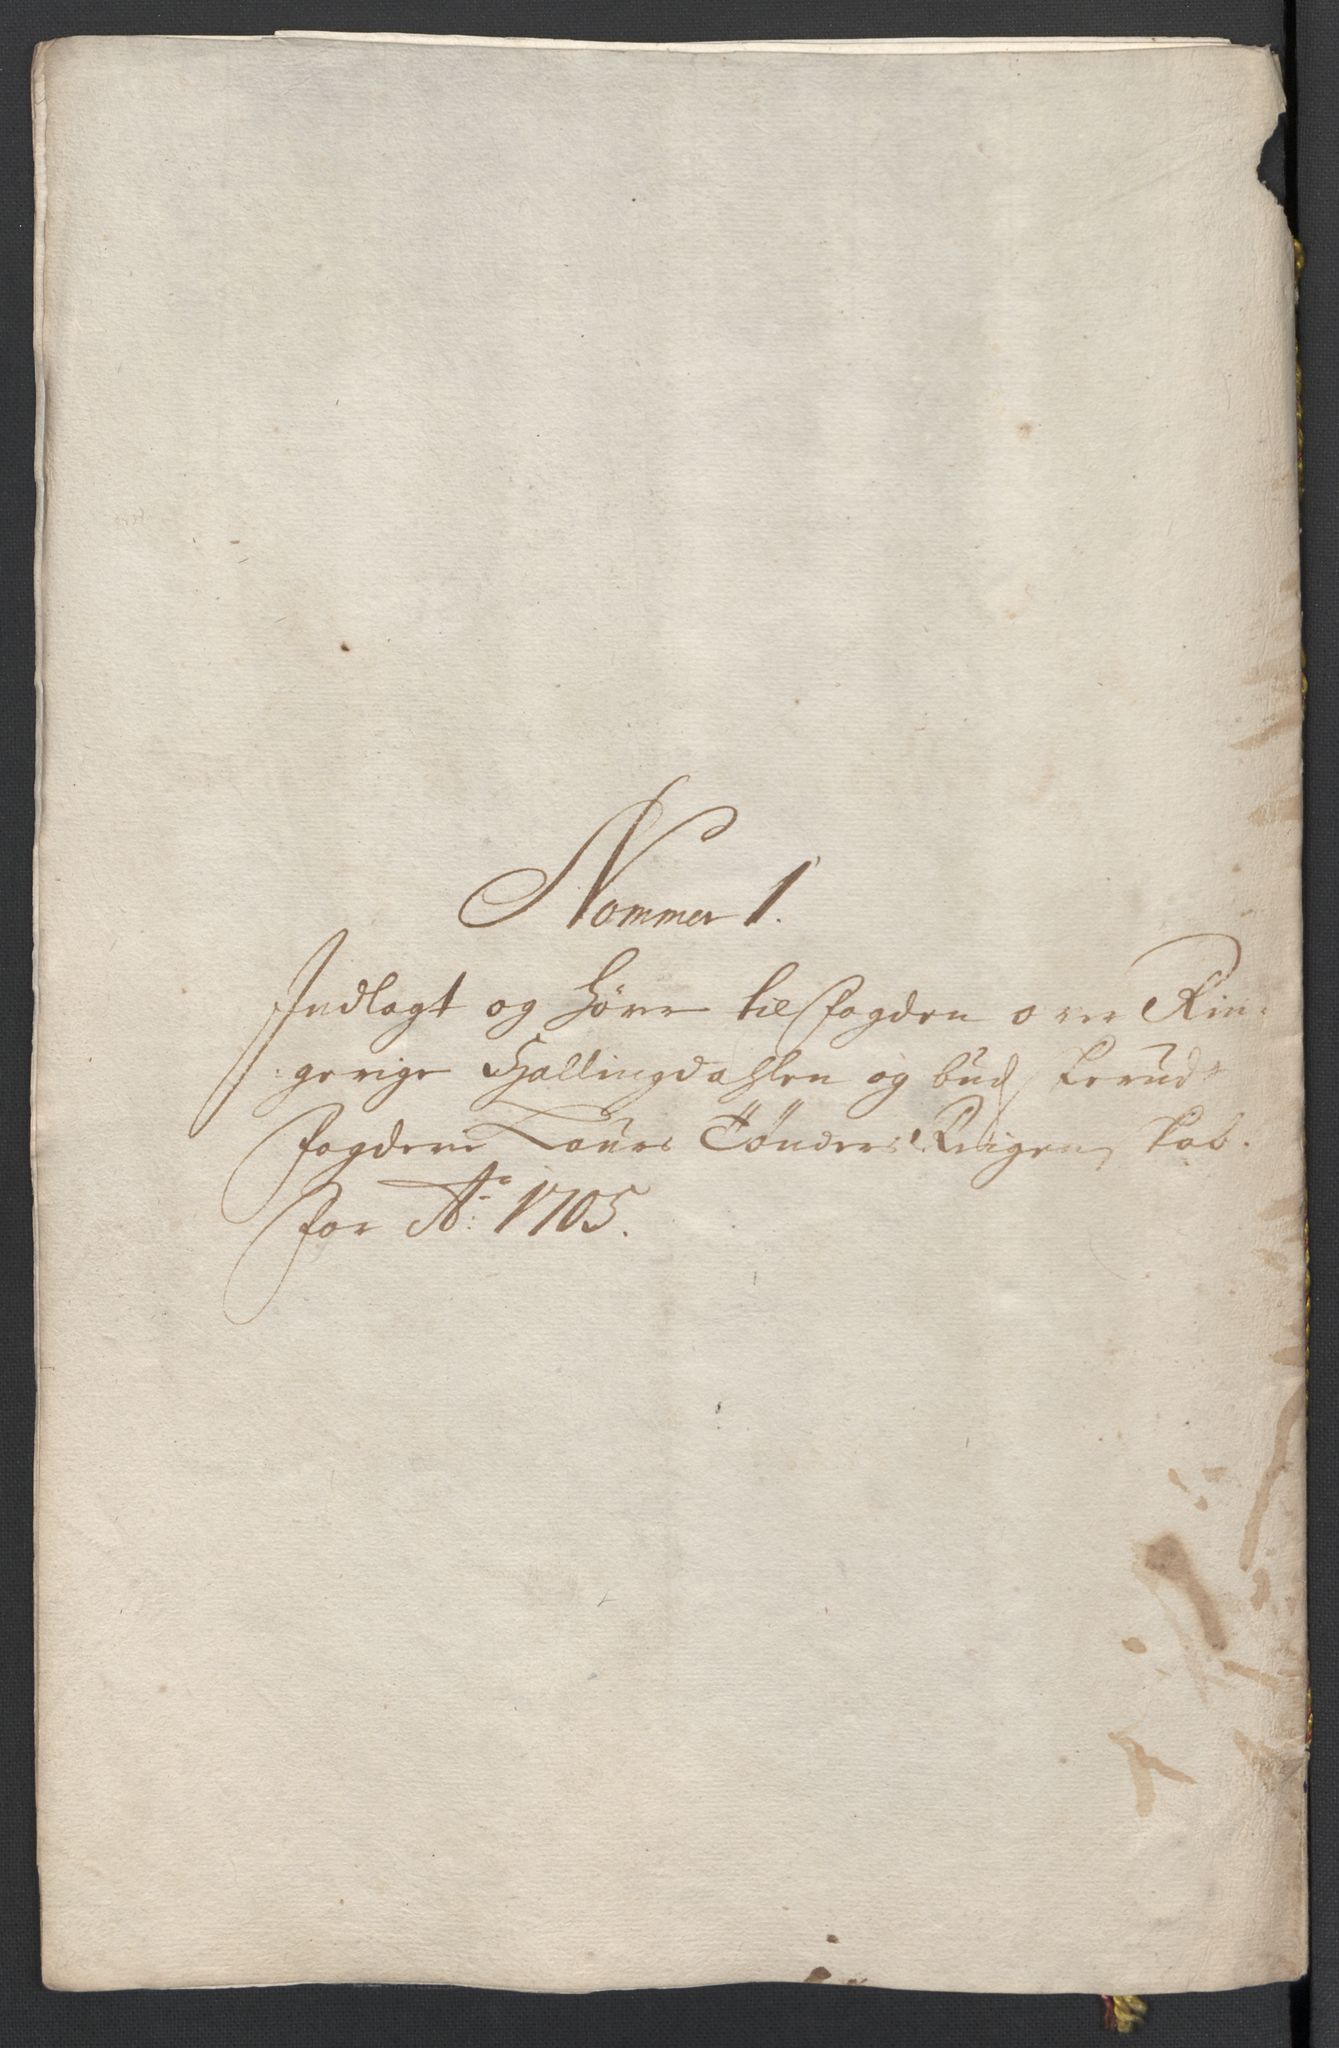 Nommer 1.
Indlagt og hører til fogden over Rin-
gerige Hallingdahlen og budskerud
fogderie Laurs Tönders Reigenskab.
for A: 1705.